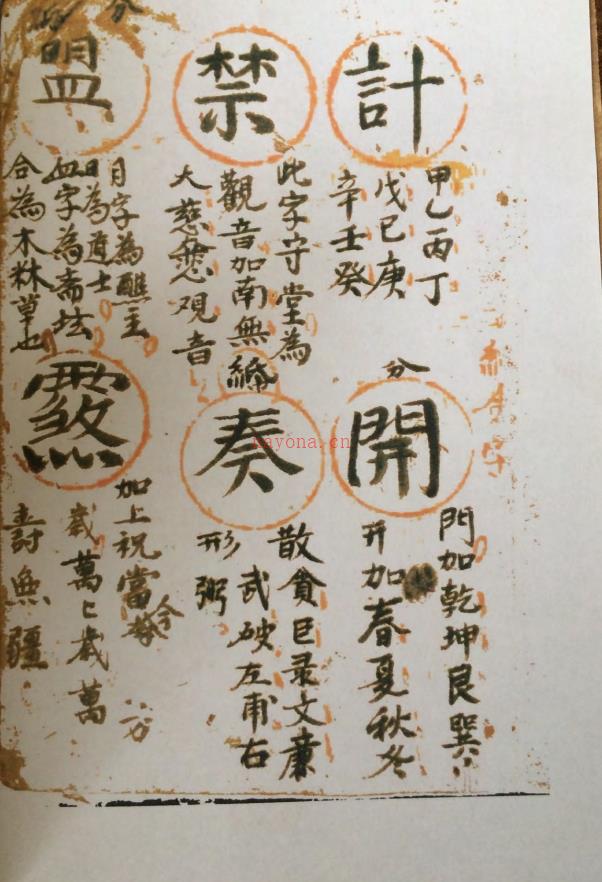 計
甲乙丙丁
戊己庚
辛壬癸
禁
此字守堂為
觀音加南無
大慈悲观音
盟
月字為醮主
日為道士
血字為斋坛
合為木林草也
分
開
門加乾坤艮巽
开加春夏秋冬
奏
散貪巨录文廉
武破左甫右
形粥
加上祝當今
歲萬〻歲萬
壽無疆
nayona.cn